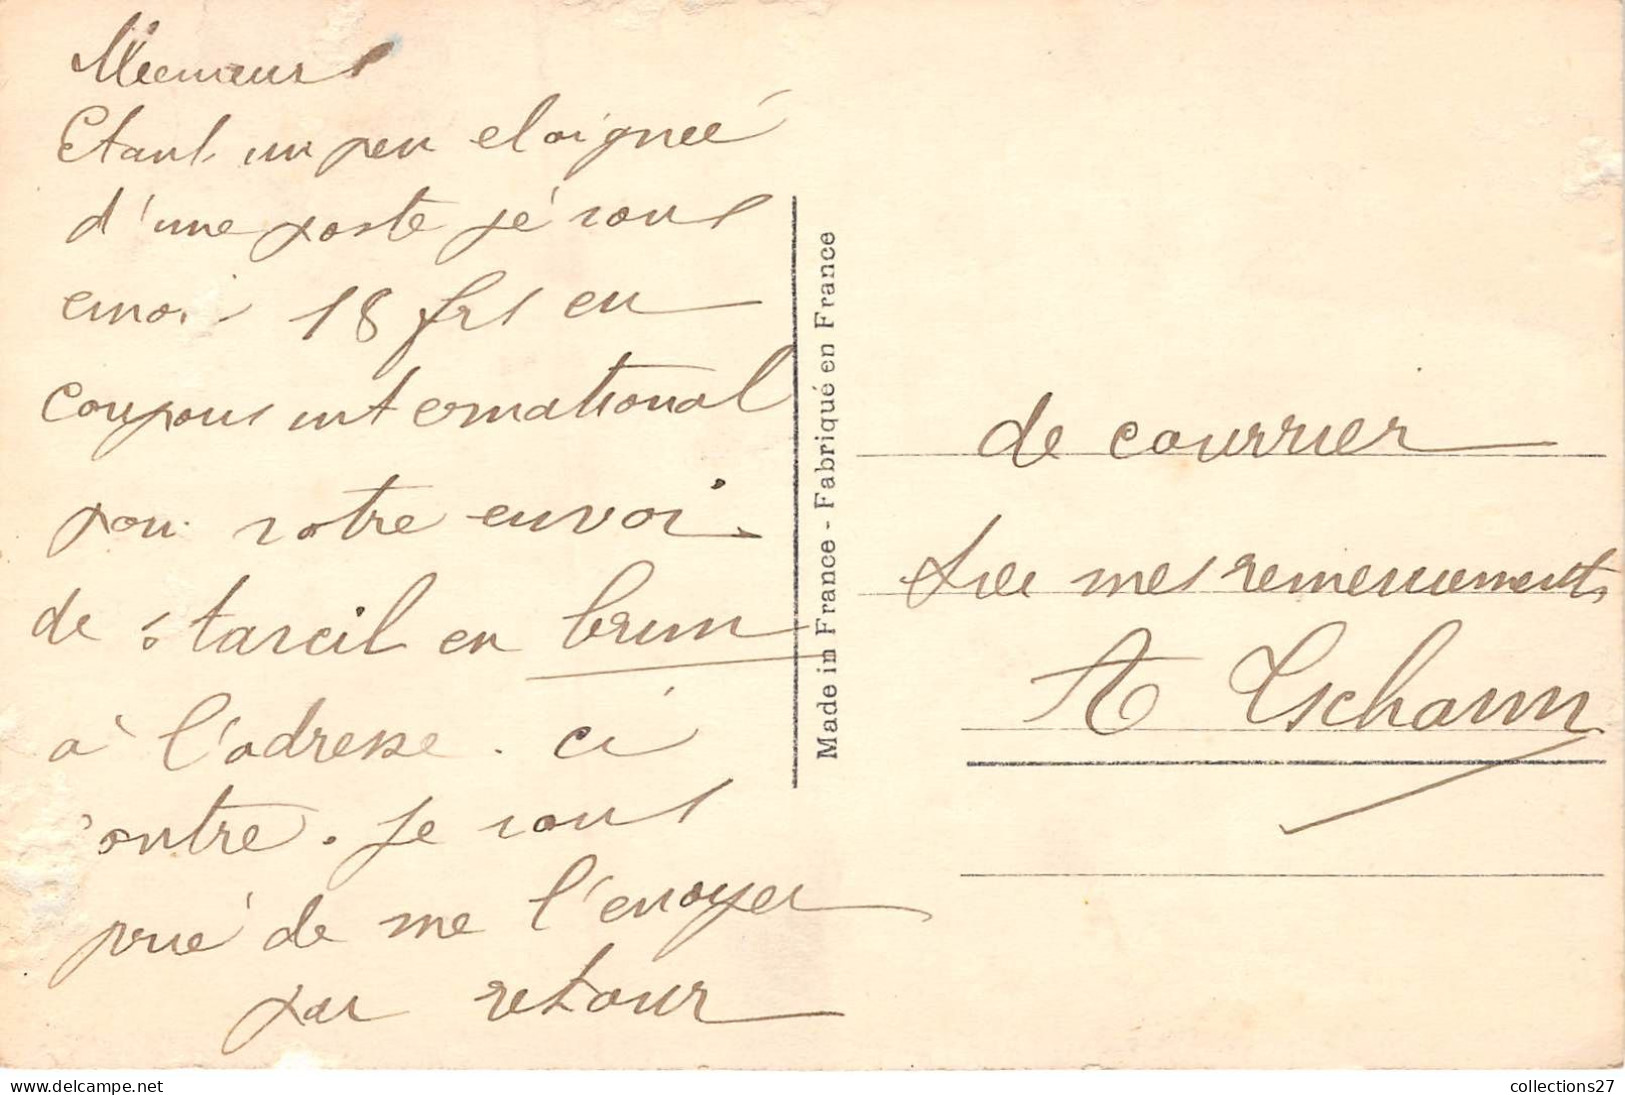 Messieurs
Etant un peu eloigneé
d'une poste je vous
envoi 18 frs en
coupons international
pour votre envoi
de starcil en brun
à l'adresse. ci
contre. Je vous
prié de me l'envoyer
par retour
de courrier
mes remerciements
A Tschann
Made in France - Fabriqué en France
collections27